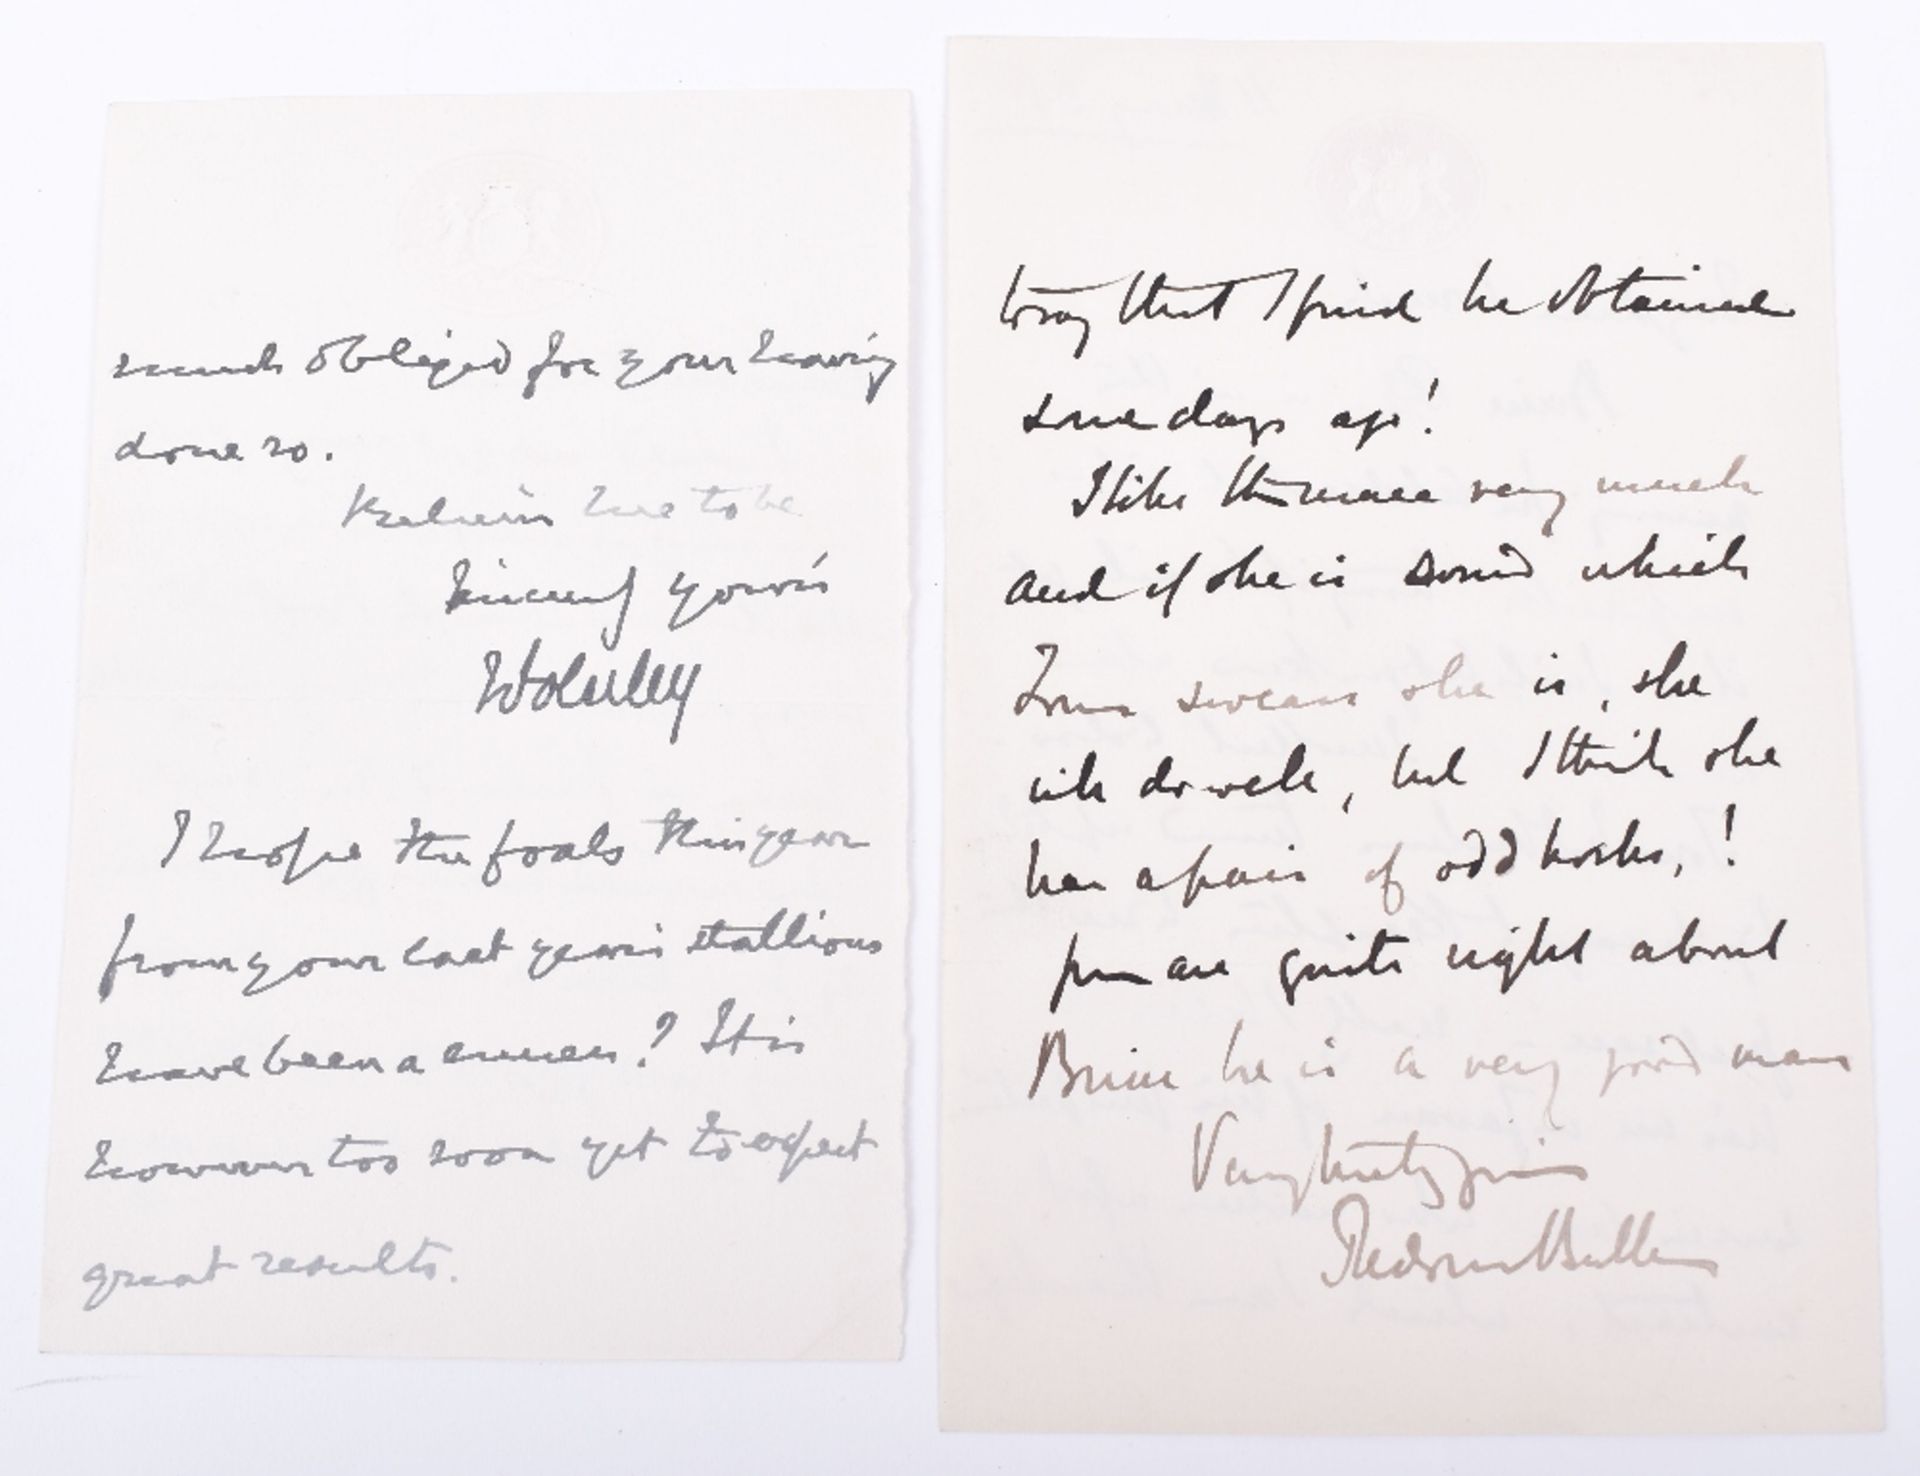 much obliged for your having
done so.
Believe me to be
Sincerely yours
Wolseley
I hope the foals this year
from your last year's stallions
have been a success? It is
however too soon yet to expect
great results.
to say that I find he obtained
some days ago!
I like the mare very much
and if she is sound which
swears she is, she
will do well, but I think she
has a pair of odd hocks,!
you are quite right about
Brine he is a very good man
Very truly yours
Redvers Buller